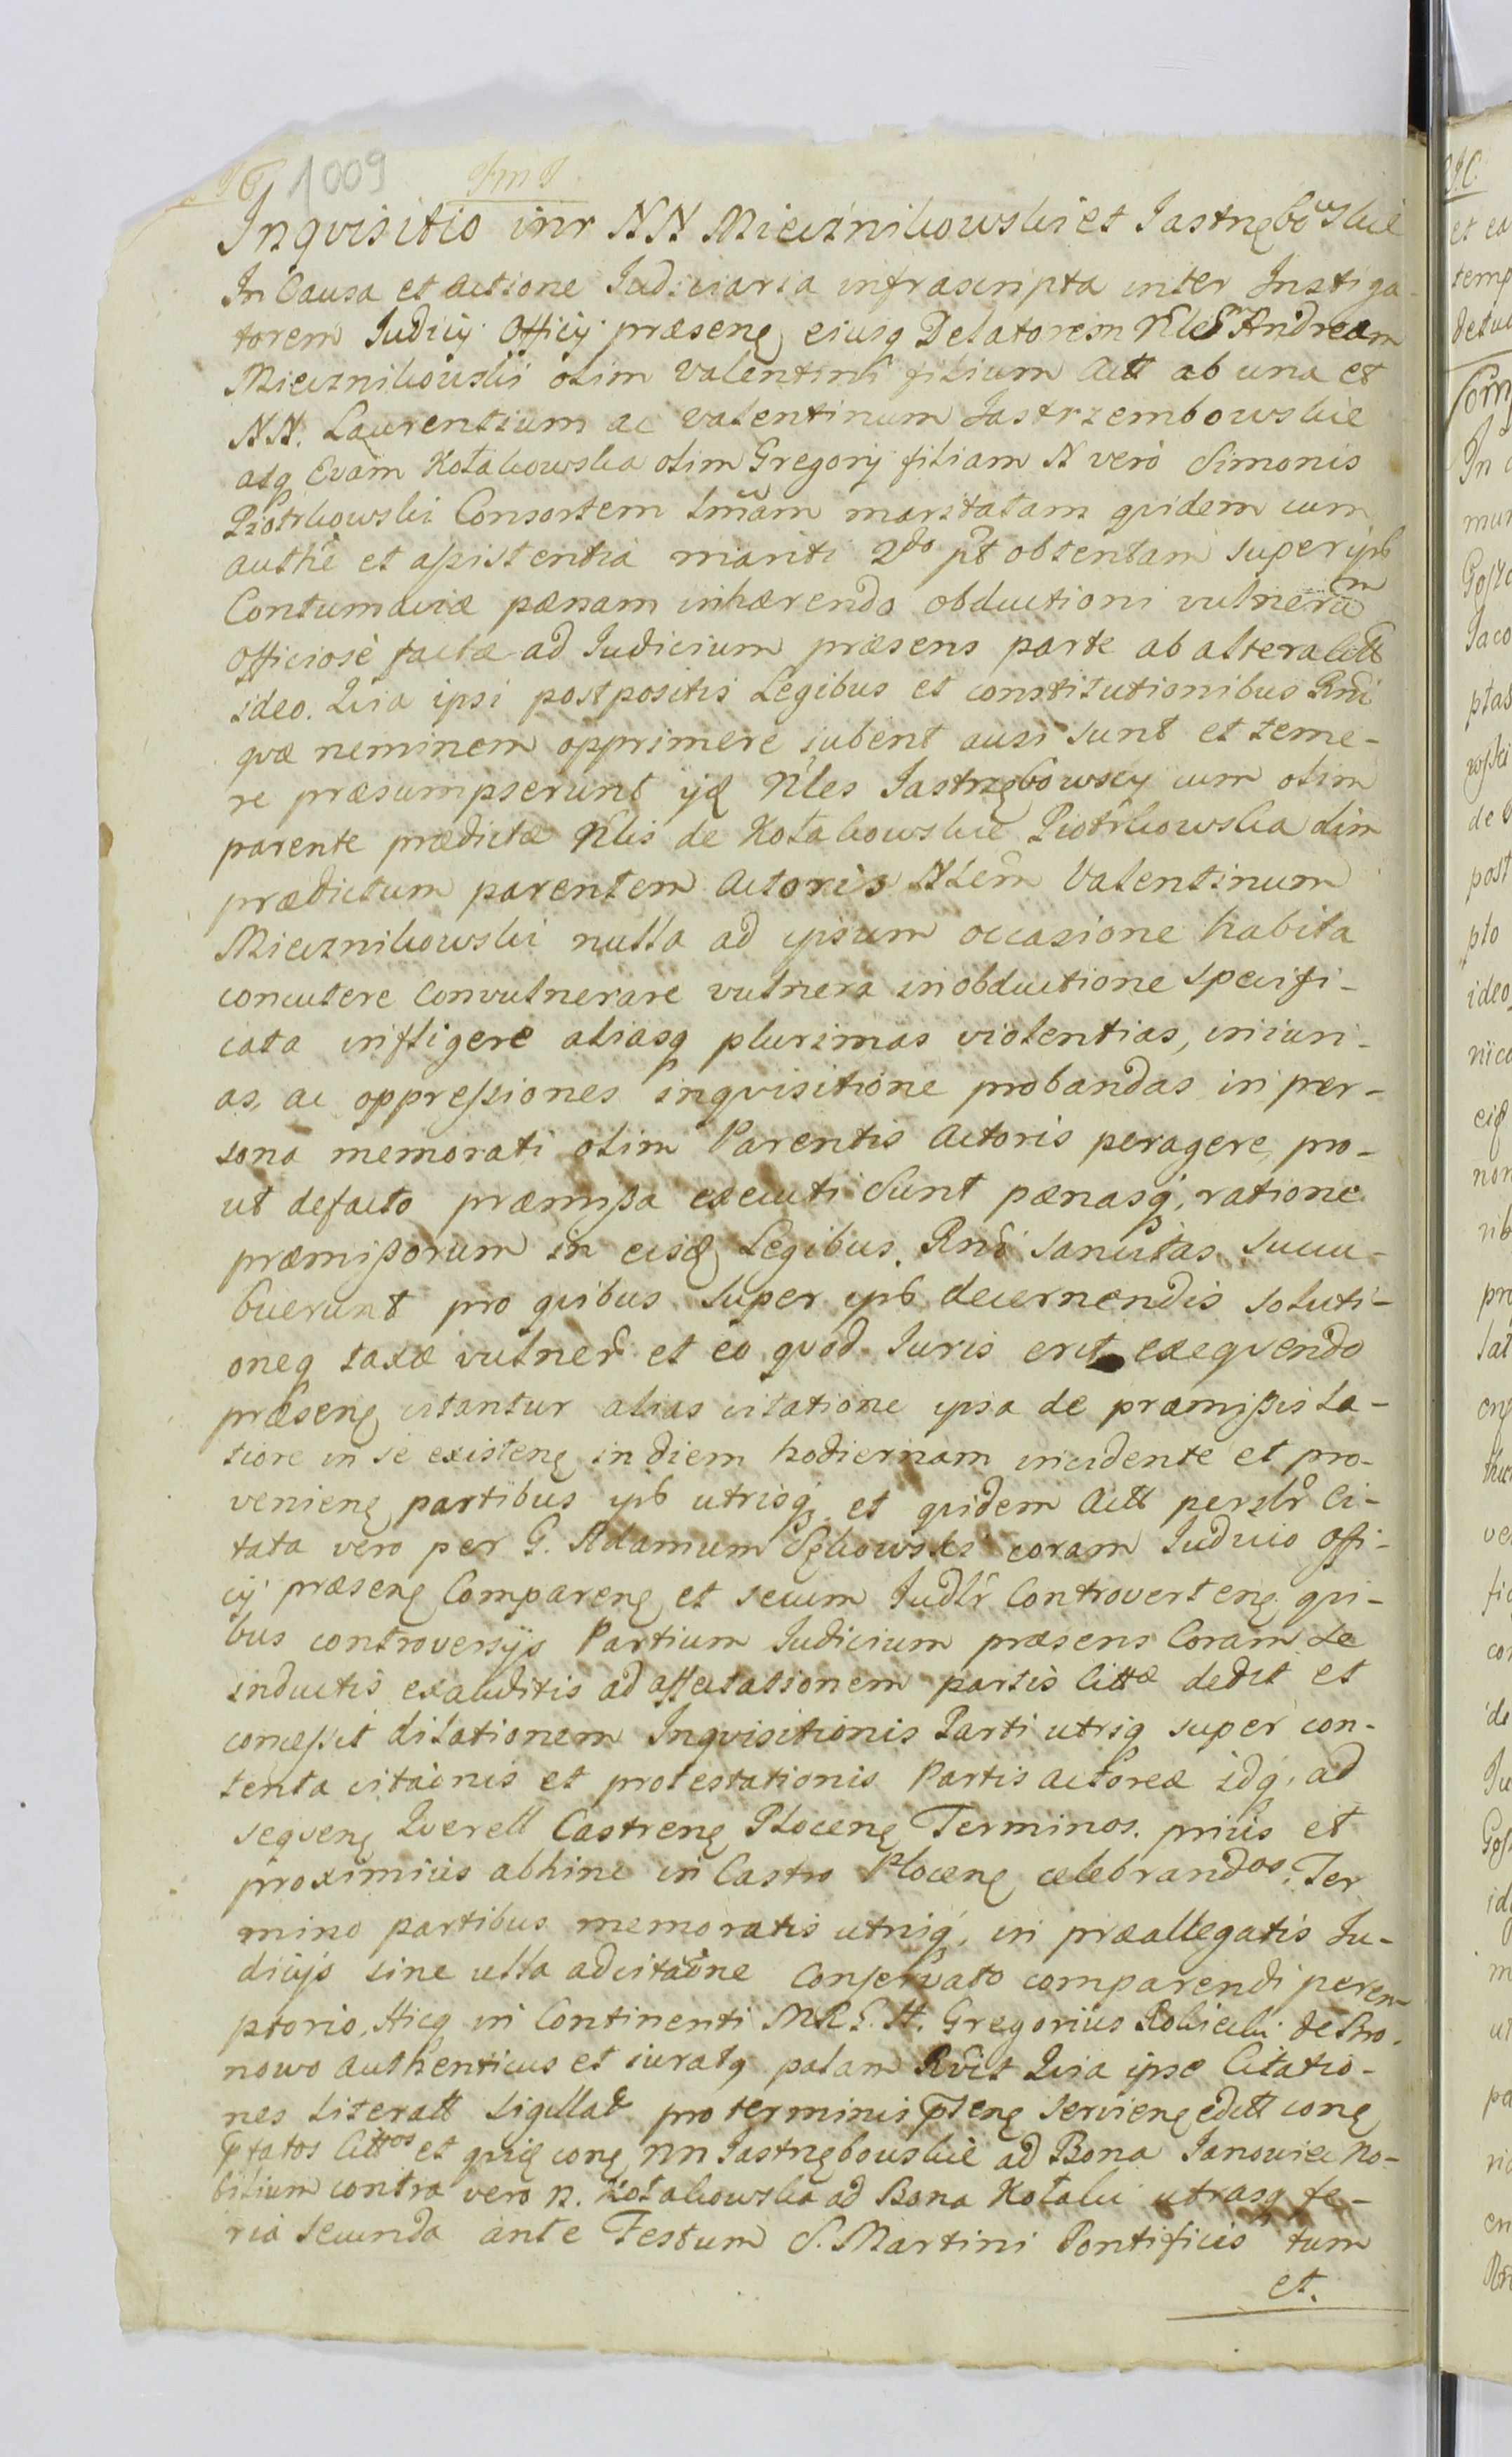 1009
Inqvisitio intr NN Miecznikowski et Jastrzębowskie
In Causa et actione Judiciaria infrascripta inter Instiga-
torem Judicij Officij præsenꝫ eiusq Delatorem Nlem Andream
Miecznikowski olim Valentini filium Actt ab una et
NN. Laurentium ac Valentinum Jastrzembowskie
atq Evam Kotakowska olim Gregorij filiam N verò Simonis
Piotrkowski Consortem lmam maritatam qvidem cum
authe et assistentia mariti 2do pt obtentam super ipß
Contumaciæ pænam inhærendo obductioni vulnerum
officiosè factæ ad Judicium præsens parte ab altera Citt
ideo. Qvia ipsi postpositis Legibus et constitutionibus Rni
qvæ neminem opprimere jubent ausi sunt et teme-
re præsumpserunt ijd Nles Jastrzębowscy cum olim
parente prædictæ Nlis de Kotakowskie Piotrkowska olim
prædictum parentem Actoris Nlem Valentinum
Miecznikowski nulla ad ipsum occasione habita
concutere convulnerare vulnera in obductione specifi-
cata infligere aliasq plurimas violentias, iniuri-
as, ac oppressiones inqvisitione probandas in per-
sona memorati olim Parentis Actoris peragere, pro-
ut defacto præmissa executi sunt pænasq, ratione
præmissorum in eisd Legibus Rni sancitas succu-
buerunt pro qvibus super ipß decernendis soluti-
oneq taxæ vulner et eo qvod Juris erit exeqvendo
præsenꝫ citantur alias citatione ipsa de præmissis la-
tiore in se existenꝫ in diem hodiernam incidente et pro-
venienꝫ partibus ipß utrisq, et qvidem Actt perslr Ci-
tata vero per G. Adamum Sękowski coram Judicio Offi-
cij præsenꝫ Comparenꝫ et secum Judlr Controvertenꝫ qvi-
bus controversijs Partium Judicium præsens Coram Se
inductis exauditis ad affectationem partis Cittæ dedit et
concessit dilationem Inqvisitionis Parti utriq super con-
tenta citaonis et protestationis Partis actoreæ idq, ad
seqvenꝫ Qverell Castrenꝫ Plocenꝫ Terminos. prius et
proximius abhinc in Castro Plocenꝫ celebrandos. Ter
mino partibus memoratis utriq, in præallegatis Ju-
dicijs sine ulla adcitaone Conservato comparendi perem-
ptorio. Hicq in Continenti MRS. H. Gregorius Rokicki de
nowo authenticus et juratq palam Rvit Qvia ipse Citatio-
nes Literatt Sigillat pro terminis ptenꝫ servienꝫ edett conꝫ
Pfatos Cittos et qvid conꝫ NN Jastrzębowskie ad Bona Janowiec No-
bilium contra vero N. Kotakowska ad Bona Kotaki utrasq fe-
ria secunda ante Festum S. Martini Pontificis tum
et.